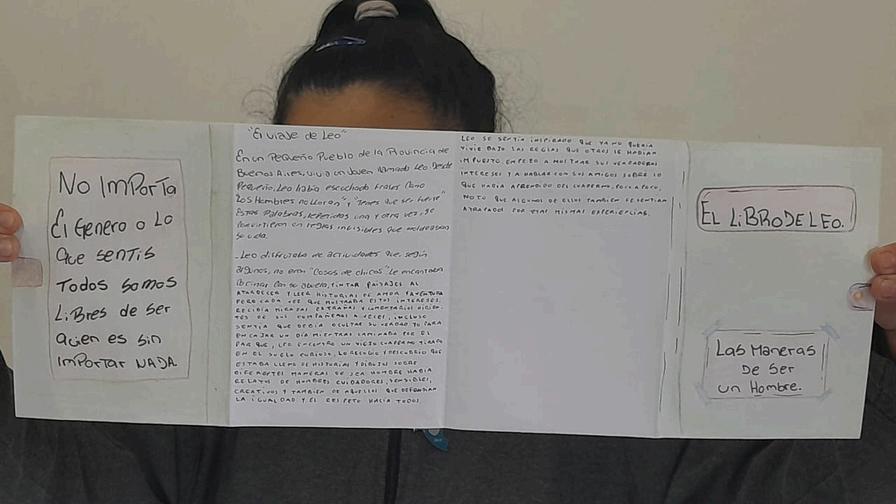 No ImPorTa
El Genero o Lo
Que senTis
Todos somos
LiBres de ser
quien es sin
ImPorTar NADA
"El viaje de Leo"
En un Pequeño Pueblo de la Provincia de
Buenos Aires, vivia un Joven llamado Leo. Desde
Pequeño, Leo habia escuchado frases Como
"Los Hombres no lloran", y "Tenes que ser fuerte"
Estas Palabras, repetidas una y otra vez, se
convirtieron en reglas invisibles que moldeaban
su vida.
-Leo disfrutaba de actividades que, según
algunos, no eran "Cosas de chicos" Le encantaba
cocinar con su abuela, PINTAR PAISAJES AL
ATARDECER Y LEER HISTORIAS DE AMOR Y AVENTURA
PERO CADA VEZ QUE MOSTRABA ESTOS INTERESES,
RECIBIA MIRADAS EXTRAÑAS Y COMENTARIOS
DE SUS COMPAÑEROS A VECES, INCLUSO
SENTIA QUE DEBIA OCULTAR SU VERDAD YO PARA
ENCAJAR UN DIA MIENTRAS CAMINABA POR EL
PARQUE, LEO ENCONTRO UN VIEJO CUADERNO TIRADO
EN EL SUELO CURIOSO, LO RECOGIO Y DESCUBRIO QUE
ESTABA LLENO DE HISTORIAS Y DIBUJOS SOBRE
DIFERENTES MANERAS DE SER HOMBRE HABIA
RELATOS DE HOMBRES CUIDADORES, SENSIBLES,
CREATIVOS Y TAMBIEN DE AQUELLOS QUE DEFENDIAN
LA IGUALDAD Y EL RESPETO HACIA TODOS.
LEO SE SENTIA INSPIRADO QUE YA NO QUERIA
VIVIR BAJO LAS REGLAS QUE OTROS LE HABIAN
IMPUESTO EMPEZO A MOSTRAR SUS VERDADEROS
INTERESES Y A HABLAR CON SUS AMIGOS SOBRE LO
QUE HABIA APRENDIDO DEL CUADERNO, POCO A POCO,
NOTO QUE ALGUNOS DE ELLOS TAMBIEN SE SENTIAN
ATRAPADOS POR ESAS MISMAS EXPERIENCIAS.
EL LiBRO DE LEO.
Las Maneras
De Ser
un Hombre.